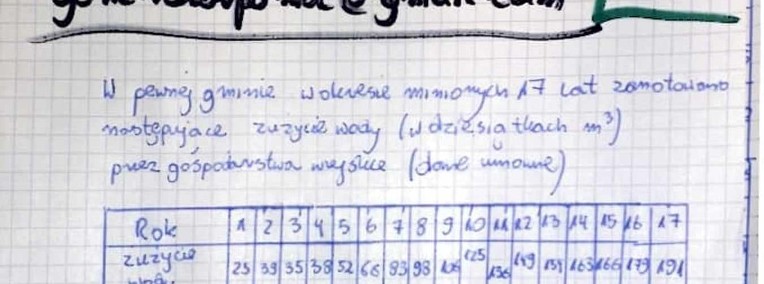 W pewnej gminie w okresie minionych 17 lat zanotowano
następujące zużycie wody (w dziesiątkach m³)
przez gospodarstwa wiejskie (dane umowne)
Rok 1 2 3 4 5 6 7 8 9 10 11 12 13 14 15 16 17
zużycie 25 39 35 38 52 66 83 98 106 125 136 149 159 163 166 179 191